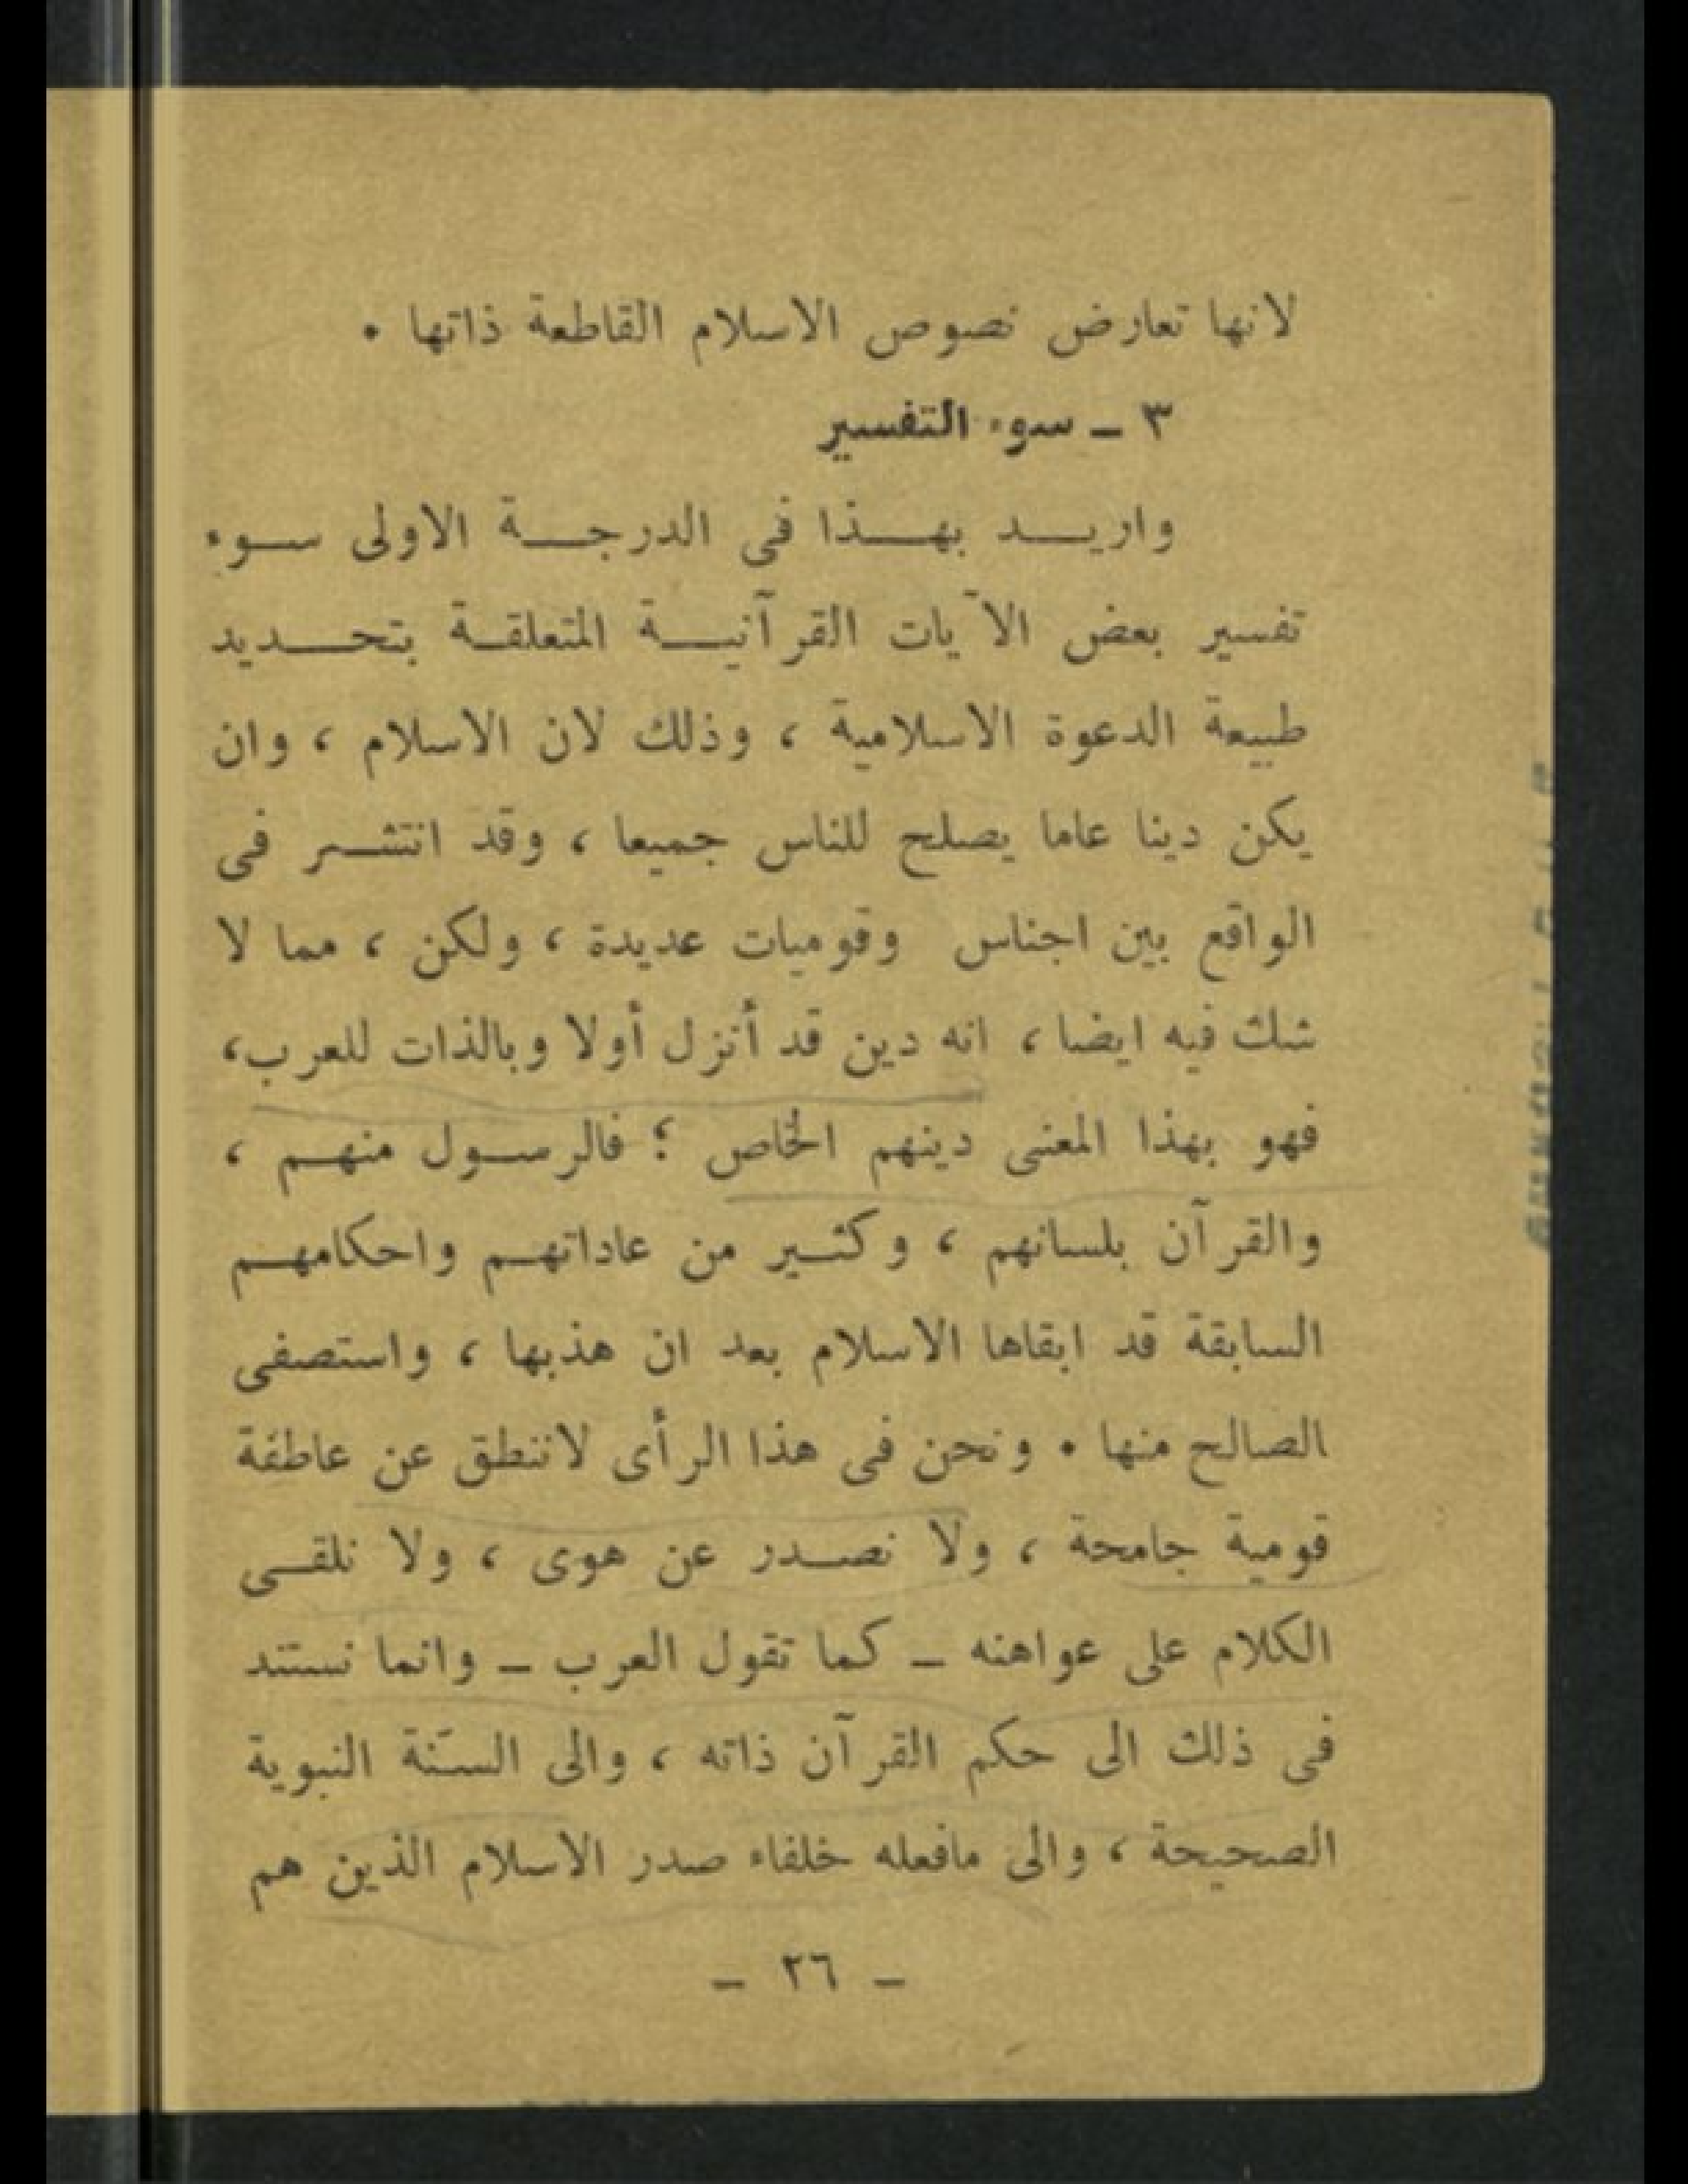 لانها تعارض نصوص الاسلام القاطعة ذاتها .
٣ ـ سوء التفسير
واريد بهذا فى الدرجة الاولى سوء
تفسير بعض الآيات القرآنية المتعلقة بتحديد
طبيعة الدعوة الاسلامية ، وذلك لان الاسلام ، وان
يكن دينا عاما يصلح للناس جميعا ، وقد انتشر فى
الواقع بين اجناس وقوميات عديدة ، ولكن ، مما لا
شك فيه ايضا ، انه دين قد أنزل أولا وبالذات للعرب،
فهو بهذا المعنى دينهم الخاص ؛ فالرسول منهم ،
والقرآن بلسانهم ، وكثير من عاداتهم واحكامهم
السابقة قد ابقاها الاسلام بعد ان هذبها ، واستصفى
الصالح منها . ونحن فى هذا الرأى لاننطق عن عاطفة
قومية جامحة ، ولا نصدر عن هوى ، ولا نلقى
الكلام على عواهنه ـ كما تقول العرب ـ وانما نستند
فى ذلك الى حكم القرآن ذاته ، والى السنّة النبوية
الصحيحة ، والى مافعله خلفاء صدر الاسلام الذين هم
ـ ٢٦ ـ